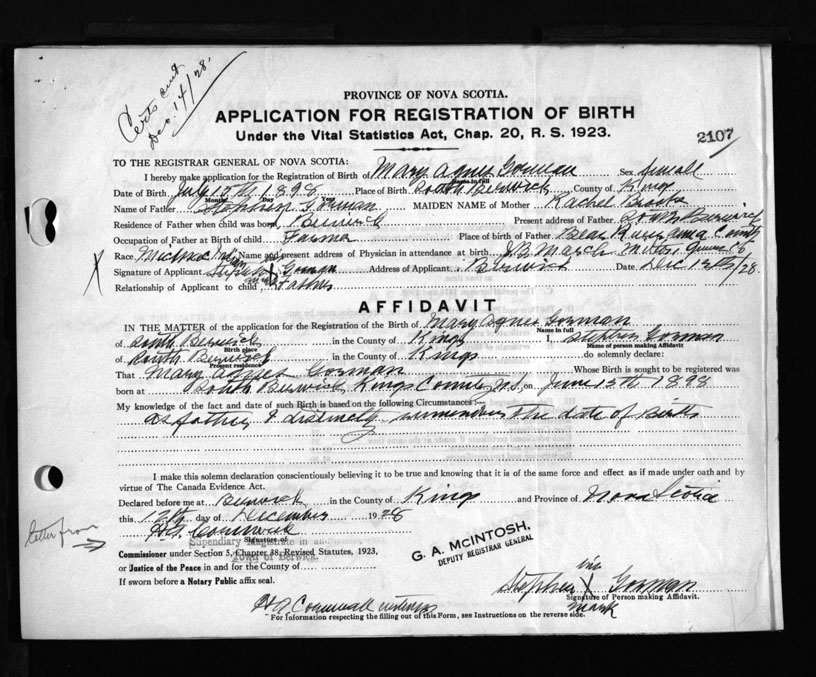 Certs out
Dec. 14/28.
PROVINCE OF NOVA SCOTIA.
APPLICATION FOR REGISTRATION OF BIRTH
Under the Vital Statistics Act, Chap. 20, R. S. 1923.
2107
TO THE REGISTRAR GENERAL OF NOVA SCOTIA:
I hereby make application for the Registration of Birth of Mary Agnes Gorman Sex female
Name in full
Date of Birth July 15th 1898 Place of Birth South Berwick County of Kings
Month Day
Name of Father Stephen Gorman MAIDEN NAME of Mother Rachel Brooks
Residence of Father when child was born Berwick Present address of Father South Berwick
Occupation of Father at Birth of child Farmer Place of birth of Father Bear River County
Race. Micmac Name and present address of Physician in attendance at birth
Signature of Applicant Stephen X Gorman Address of Applicant Berwick Date Dec 12th/28.
Relationship of Applicant to child Father
X
AFFIDAVIT
IN THE MATTER of the application for the Registration of the Birth of Mary Agnes Gorman
Name in full
of South Berwick in the County of Kings I, Stephen Gorman
Birth place Name of person making Affidavit
of South Berwick in the County of Kings do solemnly declare:
Present residence
That Mary Agnes Gorman Whose Birth is sought to be registered was
born at South Berwick Kings County N.S. on June 15th 1898
My knowledge of the fact and date of such Birth is based on the following Circumstances:—
As father I distinctly remember the date of Birth
I make this solemn declaration conscientiously believing it to be true and knowing that it is of the same force and effect as if made under oath and by
virtue of The Canada Evidence Act.
Declared before me at Berwick in the County of Kings and Province of Nova Scotia
this 12th day of December 1928
Signature of
Stipendiary Magistrate in and
Commissioner under Section 5, Chapter 38, Revised Statutes, 1923,
Town of Berwick.
or Justice of the Peace in and for the County of
If sworn before a Notary Public affix seal.
letter from
G. A. McINTOSH,
DEPUTY REGISTRAR GENERAL
his
Stephen X Gorman
Signature of Person making Affidavit.
mark
Cornwall witness
For Information respecting the filling out of this Form, see Instructions on the reverse side.